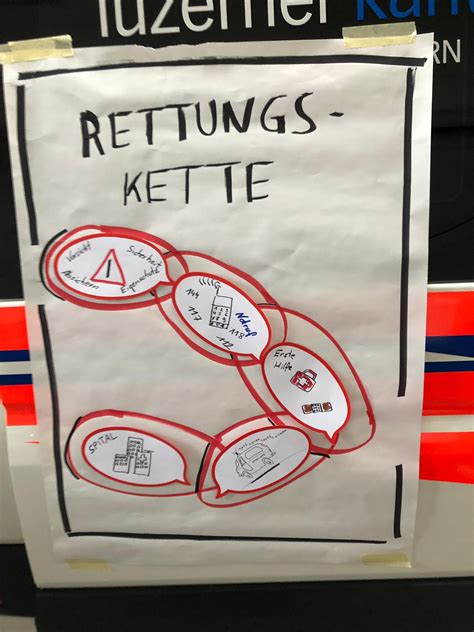 luzerner kan
RN
RETTUNGS-
KETTE
Vorsicht
Sicherheit
Absichern
Eigenschutz
144
117
Notruf
118
112
Erste
Hilfe
SPITAL